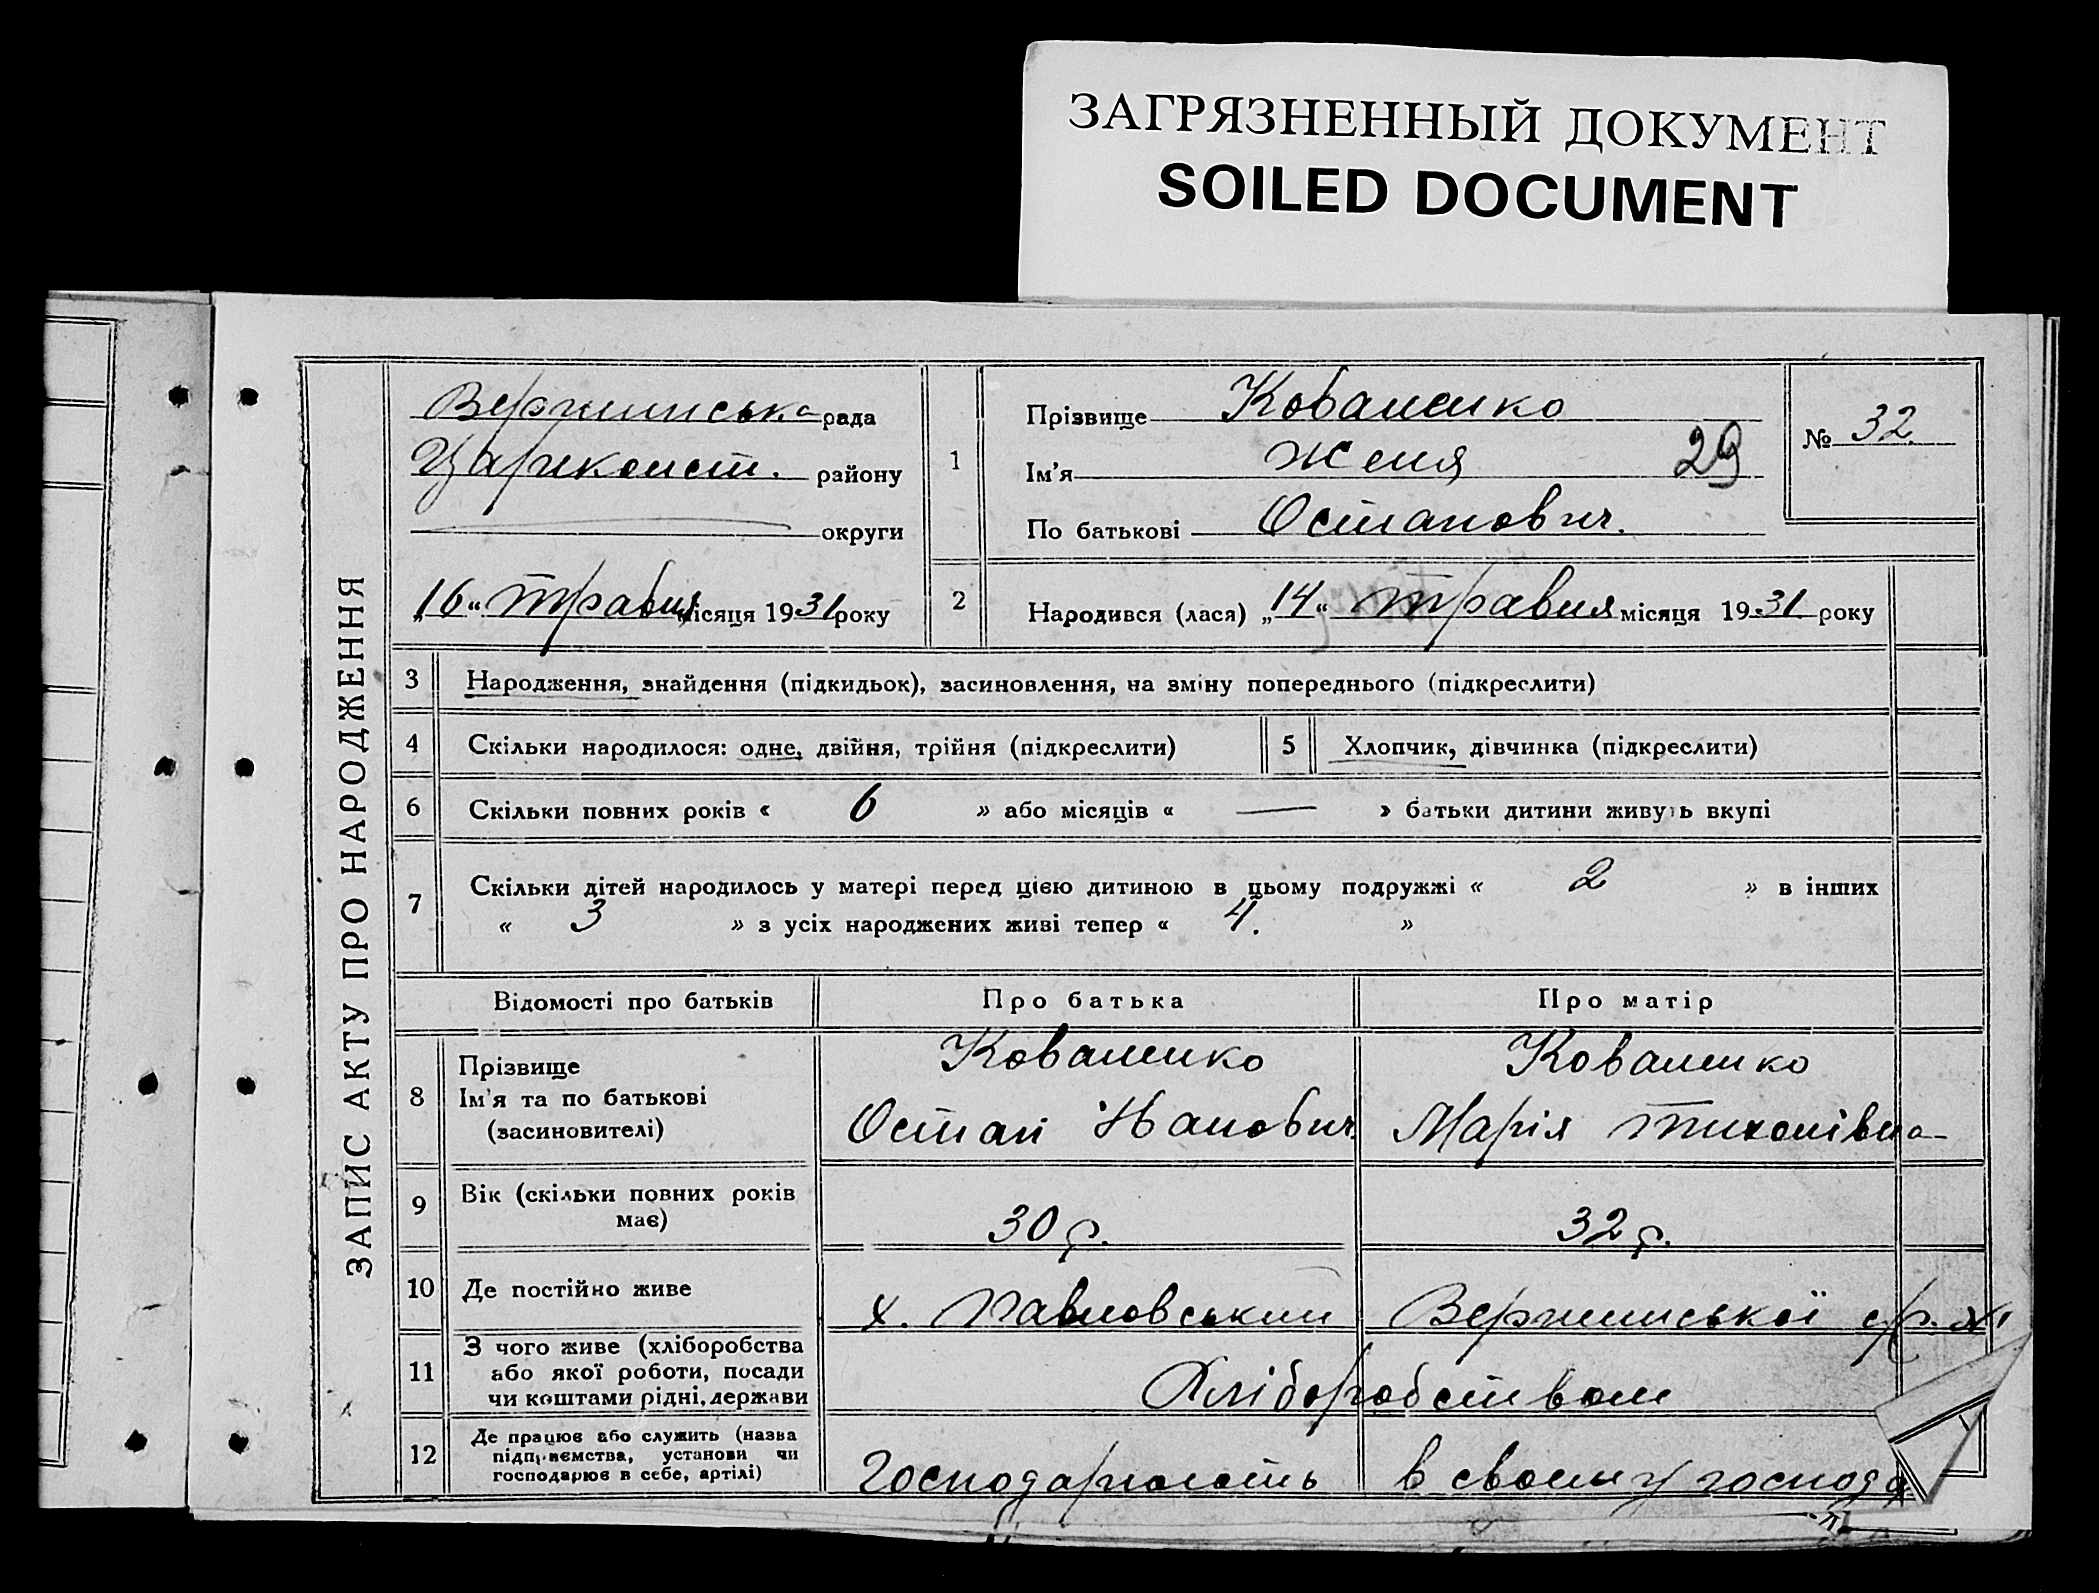 ЗАГРЯЗНЕННЫЙ ДОКУМЕНТ
SOILED DOCUMENT
ЗАПИС АКТУ ПРО НАРОДЖЕННЯ
Вершинська рада
Царикońст. району
округи
„16“ травня місяця 1931 року
1
Прізвище Коваленко
Ім’я Женя 29
По батькові Остапович.
№ 32.
2
Народився (лася) „14“ травня місяця 1931 року
3 Народження, знайдення (підкидьок), засиновлення, на зміну попереднього (підкреслити)
4 Скільки народилося: одне, двійня, трійня (підкреслити)
5 Хлопчик, дівчинка (підкреслити)
6 Скільки повних років « 6 » або місяців « — » батьки дитини живуть вкупі
7 Скільки дітей народилось у матері перед цією дитиною в цьому подружжі « 2 » в інших
« 3 » з усіх народжених живі тепер « 4. »
Відомості про батьків Про батька Про матір
8 Прізвище Коваленко Коваленко
Ім’я та по батькові Остап Іванович. Марія Тихонівна
(засиновителі)
9 Вік (скільки повних років має) 30 р. 32 р.
10 Де постійно живе х. Павловський Вершинської с/р.
11 З чого живе (хліборобства
або якої роботи, посади
чи коштами рідні, держави
Хліборобством
12 Де працює або служить (назва
підприємства, установи чи
господарює в себе, артілі)
Господарюють в своєму господ